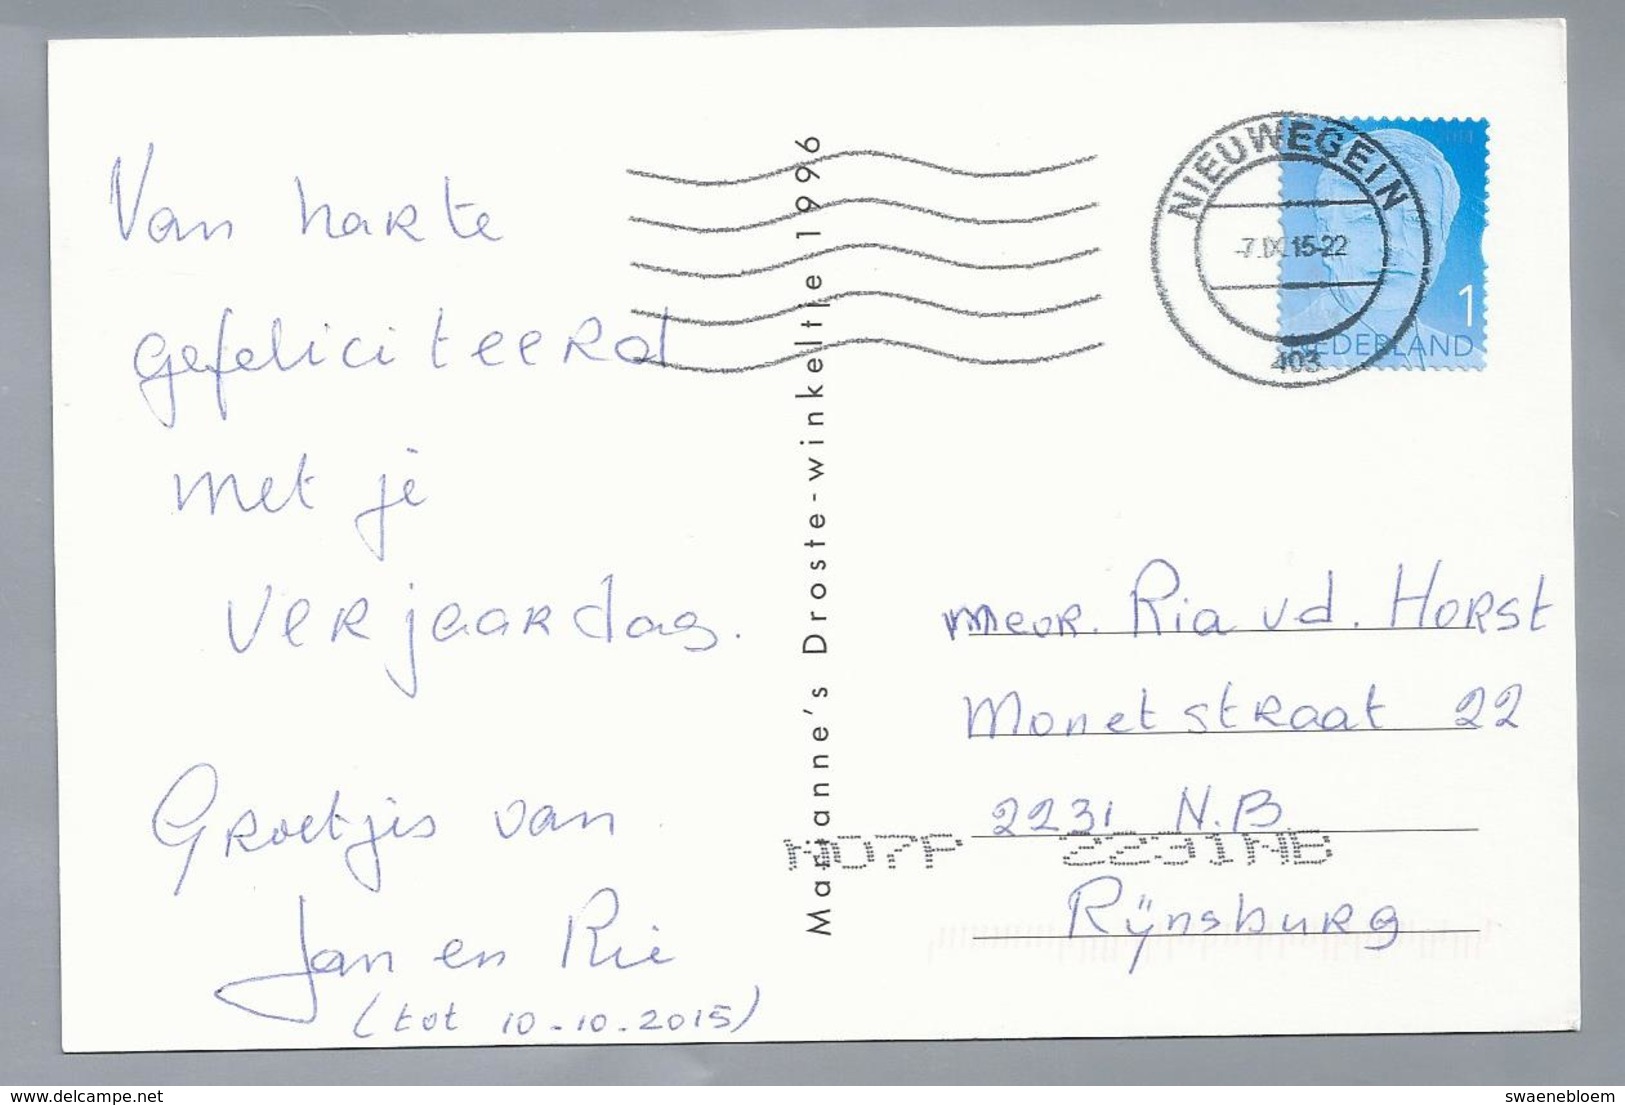 Van harte
gefeliciteerd
met je
verjaardag.
Groetjes van
Jan en Rie
(tot 10-10-2015)
Marianne's Droste-winkeltje 1996
NIEUWEGEIN
-7.IX.15-22
403
1
NEDERLAND
mevr. Ria vd. Horst
Monetstraat 22
2231 N.B
N07P 2231NB
Rijnsburg
www.delcampe.net
swaenebloem